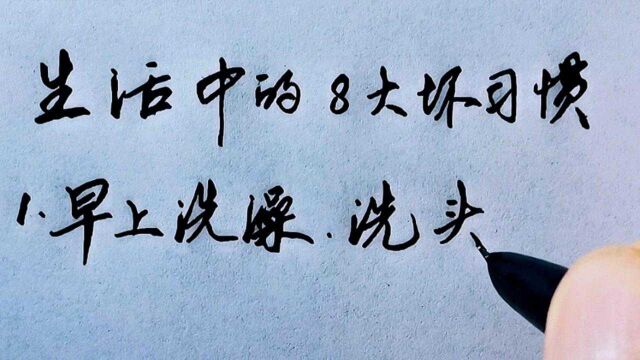 生活中的8大坏习惯
1.早上洗澡.洗头